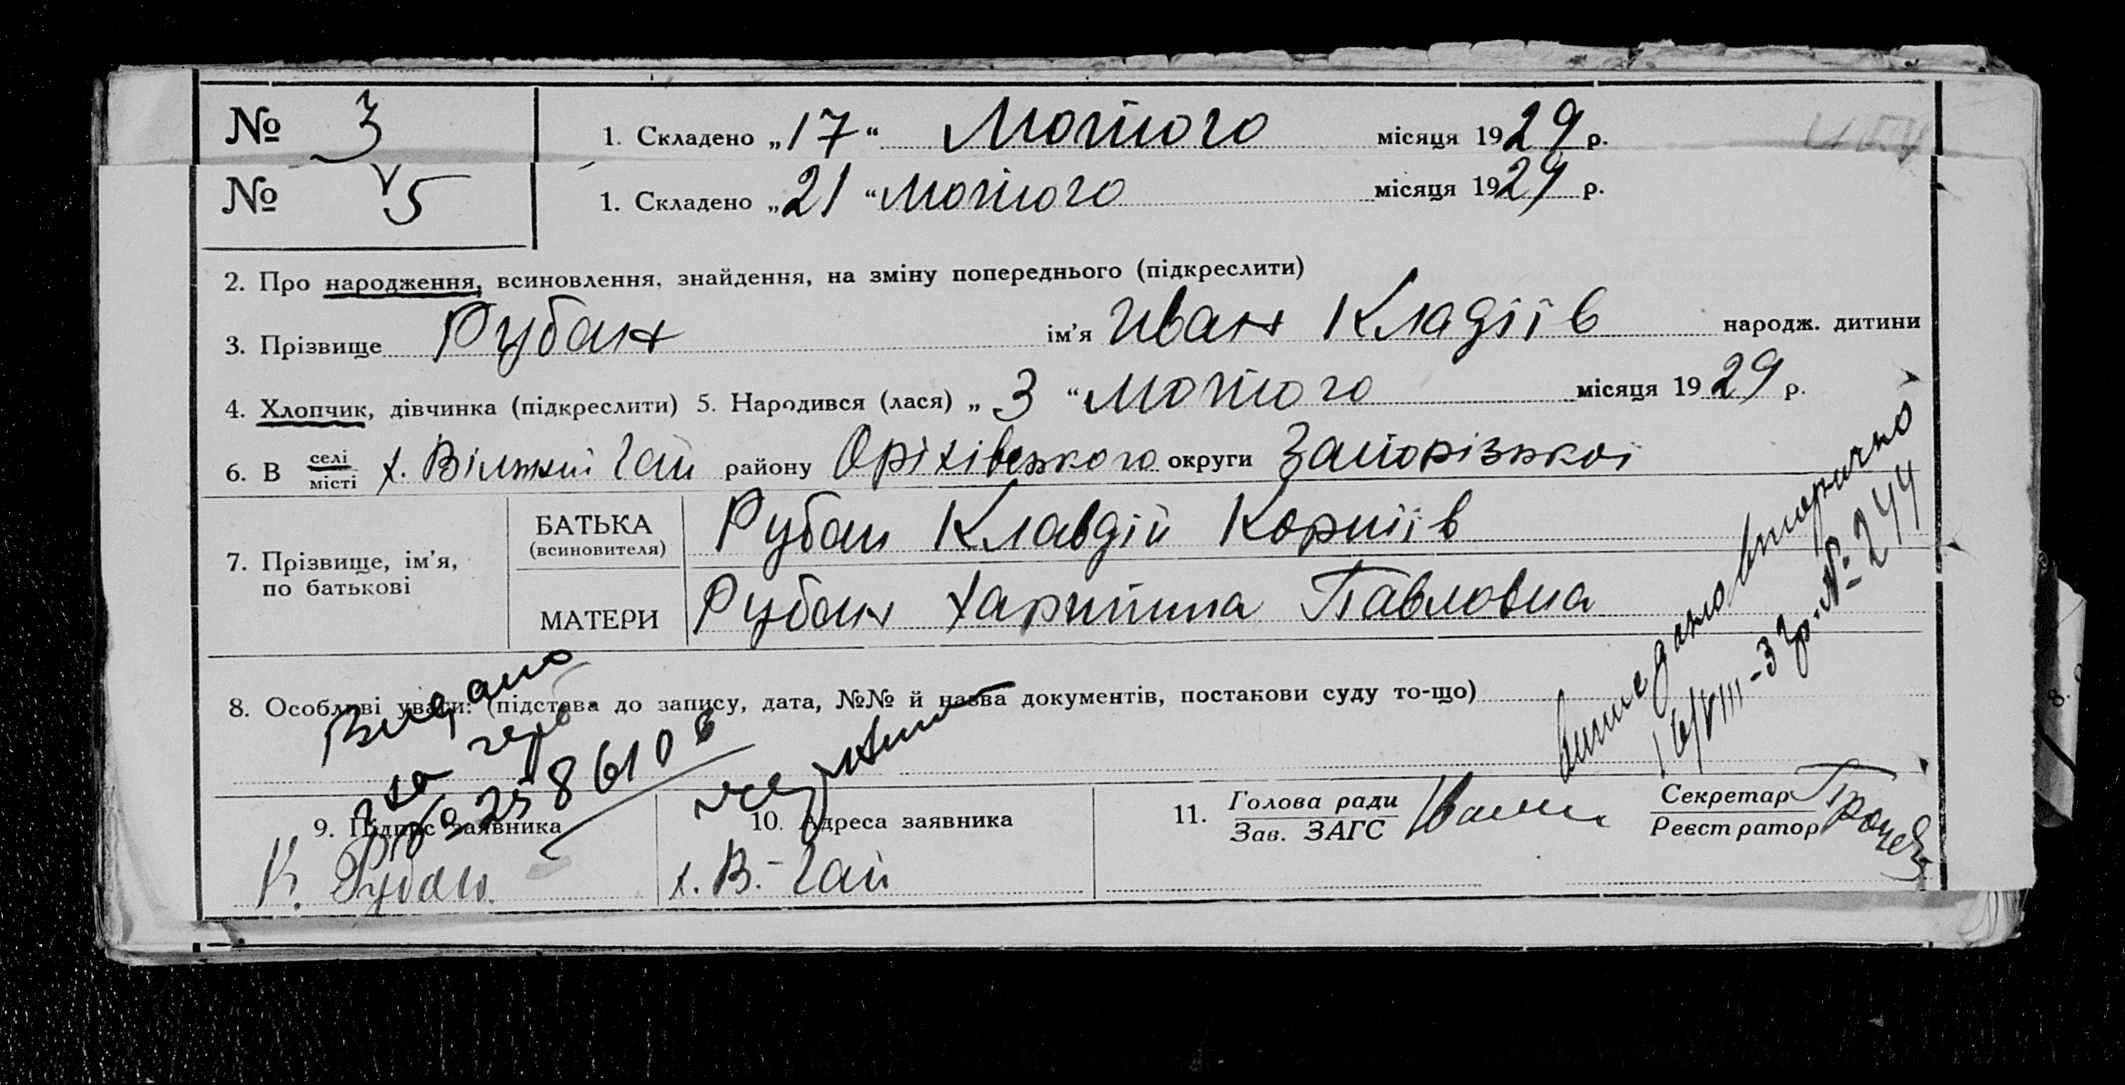 № 3 1. Складено „17“ Лютого місяця 1929 р.
№ 5 1. Складено „21“ Лютого місяця 1929 р.
2. Про народження, всиновлення, знайдення, на зміну попереднього (підкреслити)
3. Прізвище Рубан ім’я Иван Кладіїв народж. дитини
4. Хлопчик, дівчинка (підкреслити) 5. Народився (лася) „3“ Лютого місяця 1929 р.
6. В селі/місті х. Вільний Гай району Оріхівського округи Запорізької
7. Прізвище, ім’я, по батькові
БАТЬКА (всиновителя) Рубан Клавдій Корніїв
МАТЕРИ Рубан Харитина Павловна
8. Особливі уваги: (підстава до запису, дата, №№ й назва документів, постанови суду то-що)
Видано
№ 258610
вторично
16/VIII-33 р. № 244
9. Підпис заявника 10. Адреса заявника 11. Голова ради/Зав. ЗАГС Секретар/Реєстратор
К. Рубан х. В.-Гай